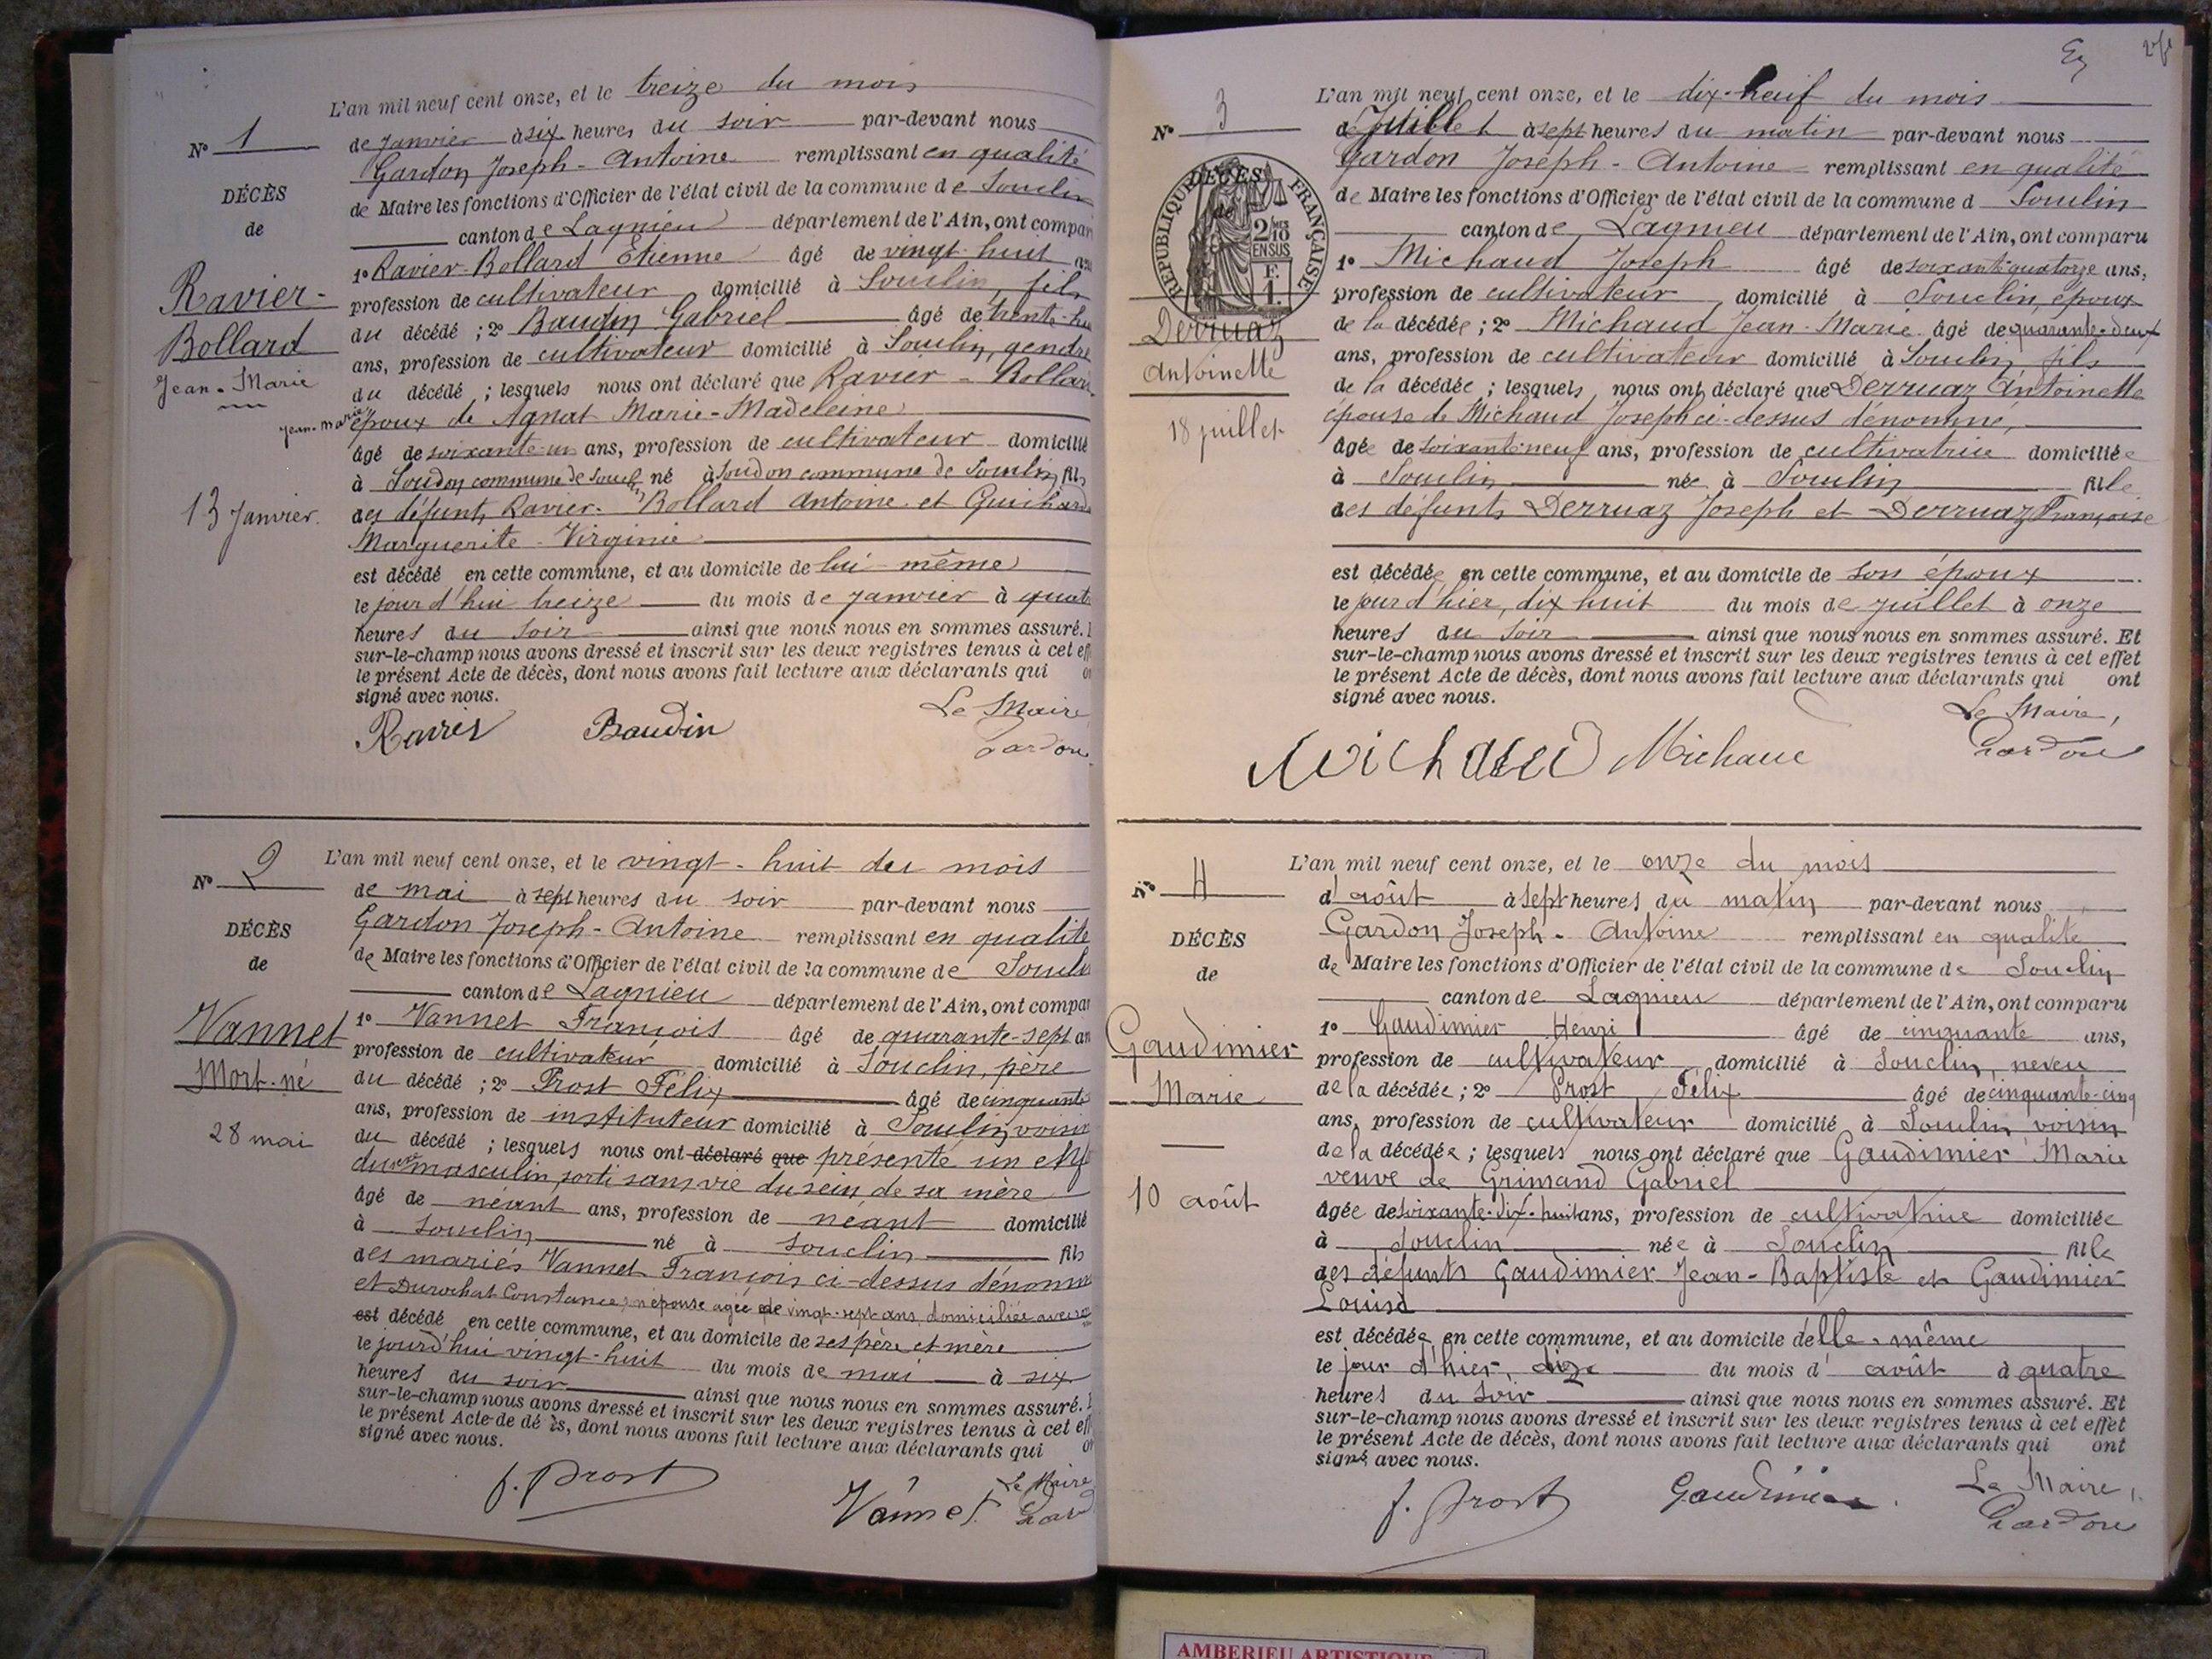 L'an mil neuf cent onze, et le treize du mois
N° 1
de Janvier à six heures du soir par-devant nous
Gardon Joseph-Antoine remplissant en qualité
DÉCÈS
de Maire les fonctions d'Officier de l'état civil de la commune de Souclin
de
canton de Lagnieu département de l'Ain, ont compar
1° Ravier-Bollard Etienne âgé de vingt-huit
Ravier-
profession de cultivateur domicilié à Souclin, fils
du décédé ; 2° Baudin Gabriel âgé de trente-hu
Bollard
ans, profession de cultivateur domicilié à Souclin, gendre
Jean-Marie
du décédé ; lesquels nous ont déclaré que Ravier-Bollar
Jean-Marie
époux de Agnat Marie-Madeleine
âgé de soixante-un ans, profession de cultivateur domicilié
à Soudon commune de Soucl né à Soudon commune de Souclin, fils
13 Janvier.
des défunts Ravier-Bollard Antoine et Guichard
Marguerite-Virginie
est décédé en cette commune, et au domicile de lui-même
le jour d'hui treize du mois de janvier à quat
heures du soir ainsi que nous nous en sommes assuré.
sur-le-champ nous avons dressé et inscrit sur les deux registres tenus à cet eff
le présent Acte de décès, dont nous avons fait lecture aux déclarants qui
signé avec nous.
Le Maire
Ravier Baudin Gardon
L'an mil neuf cent onze, et le vingt-huit du mois
N° 2
de mai à sept heures du soir par-devant nous
Gardon Joseph-Antoine remplissant en qualité
DÉCÈS
de Maire les fonctions d'Officier de l'état civil de la commune de Soucli
de
canton de Lagnieu département de l'Ain, ont compar
1° Vannet François âgé de quarante-sept an
Vannet
profession de cultivateur domicilié à Souclin, père
Mort-né
du décédé ; 2° Prost Félix âgé de cinquante
ans, profession de instituteur domicilié à Souclin, voisin
28 mai
du décédé ; lesquels nous ont déclaré que présenté un enf
du sexe masculin, sorti sans vie du sein de sa mère
âgé de néant ans, profession de néant domicilié
à Souclin né à Souclin fils
des mariés Vannet François ci-dessus dénommé
et Durochat Constance, épouse agée de vingt-sept ans, domiciliée avec
est décédé en cette commune, et au domicile de ses père et mère
le jourd'hui vingt-huit du mois de mai à six
heures du soir ainsi que nous nous en sommes assuré.
sur-le-champ nous avons dressé et inscrit sur les deux registres tenus à cet eff
le présent Acte de dé ès, dont nous avons fait lecture aux déclarants qui
signé avec nous.
Le Maire
f. Prost Vannet Gard
L'an mil neuf cent onze, et le dix-neuf du mois
N° 3
de Juillet à sept heures du matin par-devant nous
Gardon Joseph-Antoine remplissant en qualité
DÉCÈS
de
RÉPUBLIQUE FRANÇAISE
2/10 MES
EN SUS
F.
1.
de Maire les fonctions d'Officier de l'état civil de la commune d Souclin
canton de Lagnieu département de l'Ain, ont comparu
1° Michaud Joseph âgé de soixante-quatorze ans,
profession de cultivateur domicilié à Souclin, époux
Derruaz
de la décédée ; 2° Michaud Jean-Marie âgé de quarante-deux
ans, profession de cultivateur domicilié à Souclin, fils
Antoinette
de la décédée ; lesquels nous ont déclaré que Derruaz Antoinette
épouse de Michaud Joseph ci-dessus dénommé,
18 juillet
âgée de soixante-neuf ans, profession de cultivatrice domiciliée
à Souclin née à Souclin fille
des défunts Derruaz Joseph et Derruaz Françoise
est décédée en cette commune, et au domicile de son époux
le jour d'hier, dix huit du mois de juillet à onze
heures du soir ainsi que nous nous en sommes assuré. Et
sur-le-champ nous avons dressé et inscrit sur les deux registres tenus à cet effet
le présent Acte de décès, dont nous avons fait lecture aux déclarants qui ont
signé avec nous.
Le Maire,
Michaud Michaud Gardon
L'an mil neuf cent onze, et le onze du mois
N° 4
d'août à sept heures du matin par-devant nous
Gardon Joseph-Antoine remplissant en qualité
DÉCÈS
de Maire les fonctions d'Officier de l'état civil de la commune de Souclin
de
canton de Lagnieu département de l'Ain, ont comparu
1° Gaudimier Henri âgé de cinquante ans,
Gaudimier
profession de cultivateur domicilié à Souclin, neveu
Marie
de la décédée ; 2° Prost Félix âgé de cinquante-cinq
ans, profession de cultivateur domicilié à Souclin voisin
de la décédée ; lesquels nous ont déclaré que Gaudimier Marie
veuve de Grimand Gabriel
10 août
âgée de soixante-dix-huit ans, profession de cultivatrice domiciliée
à Souclin née à Souclin fille
des défunts Gaudimier Jean-Baptiste et Gaudimier
Louise
est décédée en cette commune, et au domicile d'elle-même
le jour d'hier, dix du mois d'août à quatre
heures du soir ainsi que nous nous en sommes assuré. Et
sur-le-champ nous avons dressé et inscrit sur les deux registres tenus à cet effet
le présent Acte de décès, dont nous avons fait lecture aux déclarants qui ont
signé avec nous.
Le Maire,
f. Prost Gaudimier Gardon
AMBERIEU ARTISTIQUE